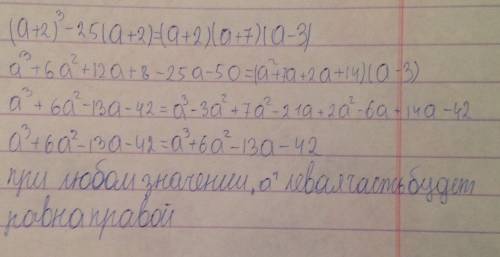 (a+2)³-25(a+2)=(a+2)(a+7)(a-3)
a³+6a²+12a+8-25a-50=(a²+7a+2a+14)(a-3)
a³+6a²-13a-42=a³-3a²+7a²-21a+2a²-6a+14a-42
a³+6a²-13a-42=a³+6a²-13a-42
при любом значении "a" левая часть будет
равна правой